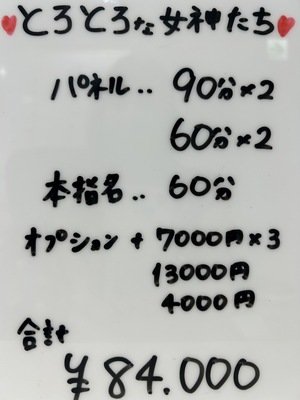 ♥とろとろな女神たち♥
パネル‥ 90分×2
60分×2
本指名‥ 60分
オプション + 7000円×3
13000円
4000円
合計
¥84.000